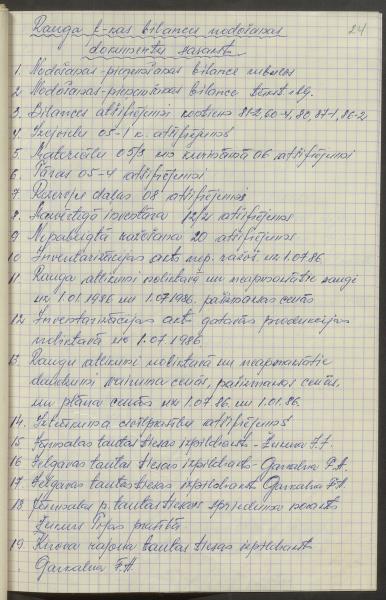 24
Rauga c-kas bilances nodošanas
dokumentu saraksts
1. Nodošanas-pieņemšanas bilance
2. Nodošanas-pieņemšanas bilance
3. Bilances atšifrējumi 81-2, 60-4, 80, 87-1, 86-2
4. 05-1 k. atšifrējums
5. Materiālu 05/3 06 atšifrējumi
6. Taras 05-4 atšifrējumi
7. Rezerves daļas 08 atšifrējumi
8. Mazvērtīgā inventāra 12/2 atšifrējums
9. Nepabeigtā ražošana 20 atšifrējums
10. Inventarizācijas akts nep. ražoš. uz 1.07.86
11. Raugu atlikumi noliktavā un neapmaksātie raugi
uz 1.01.1986 un 1.07.1986. pašizmaksas cenās
12. Inventarizācijas akts gatavās produkcijas
noliktavā uz 1.07.1986
13. Raugu atlikumi noliktavā un neapmaksātie
dokumenti vairuma cenās, pašizmaksas cenās,
un plāna cenās uz 1.07.86. un 1.01.86.
14. atšifrējums
15. tautas tiesas izpildraksts - F.F.
16. Jelgavas tautas tiesas izpildraksts - Garkalna F.A.
17. Jelgavas tautas tiesas izpildraksts Garkalna F.A.
18. p. tautas tiesas sprieduma noraksts
prasībā
19. Kirova rajona tautas tiesas izpildraksts
Garkalna F.A.